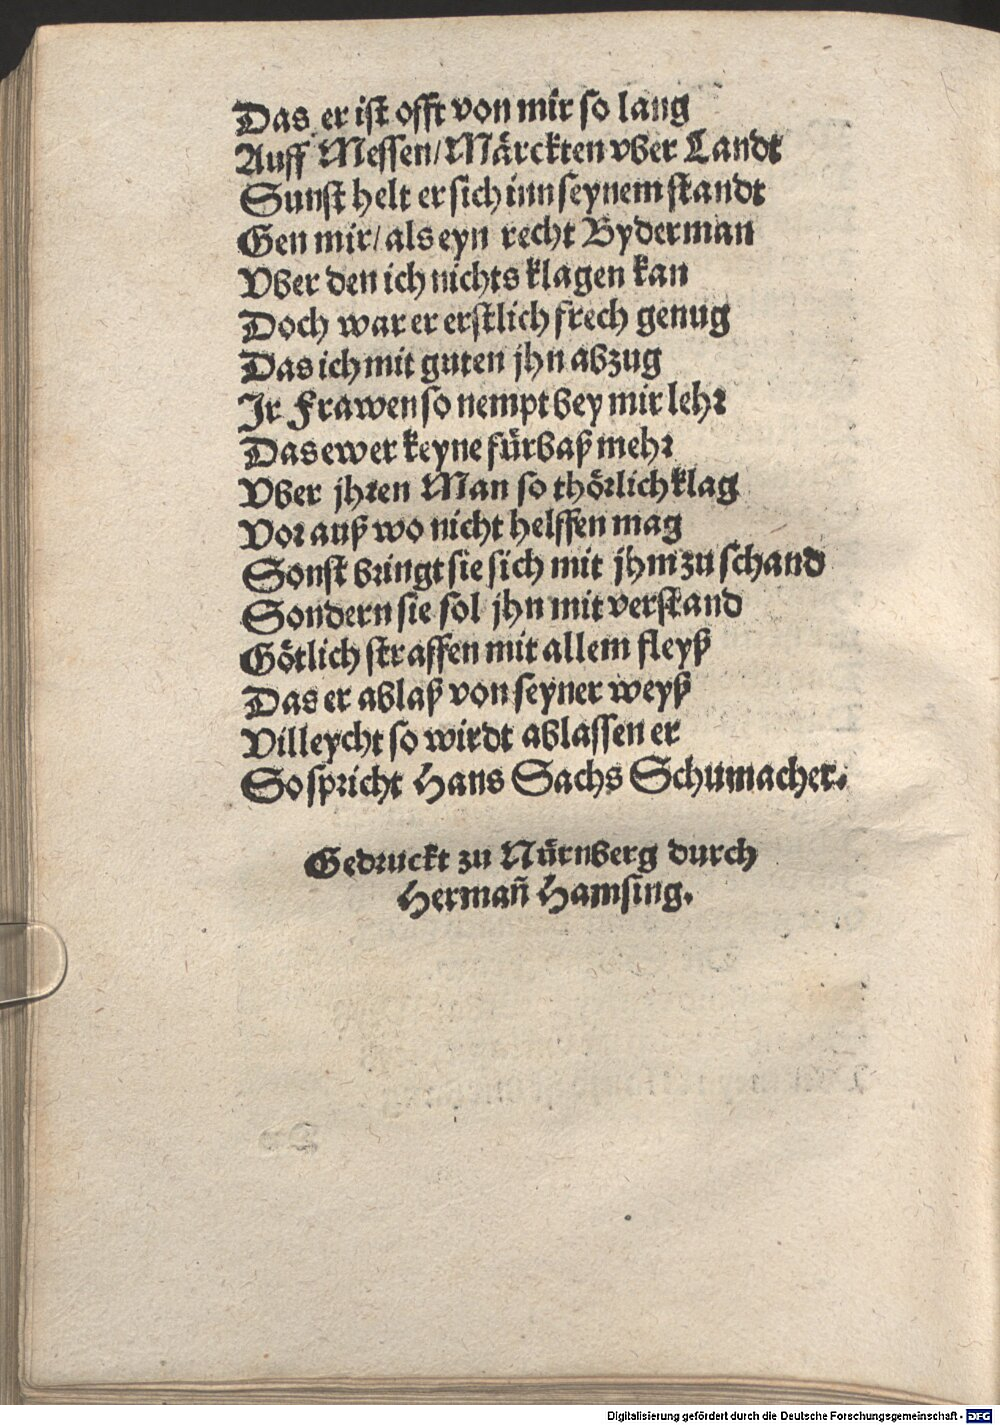 Das er ist offt von mir so lang
Auff Messen/Märckten vber Landt
Sunst helt er sich inn seynem standt
Gen mir/als eyn recht Byderman
Vber den ich nichts klagen kan
Doch war er erstlich frech genug
Das ich mit guten jhn abzug
Ir Frawen so nempt bey mir lehr
Das ewer keyne fürbaß mehr
Vber jhren Man so thörlich klag
Vor auß wo nicht helffen mag
Sonst bringt sie sich mit jhm zu schand
Sondern sie sol jhn mit verstand
Götlich straffen mit allem fleyß
Das er ablaß von seyner weyß
Villeycht so wirdt ablassen er
So spricht Hans Sachs Schumacher.
Gedruckt zu Nürnberg durch
Hermañ Hamsing.
Digitalisierung gefördert durch die Deutsche Forschungsgemeinschaft - DFG